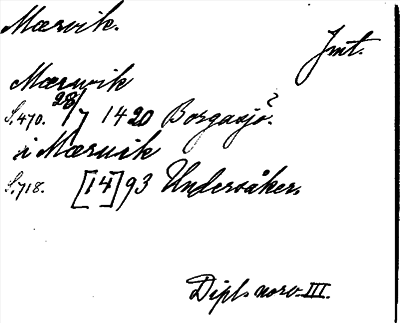 Mærvik.
Jmt.
Mærwik
S. 470. 28/7 1420 Borgasjö?
i Mærvik
S. 718. [14]93 Undersåker.
Dipl. norv. III.